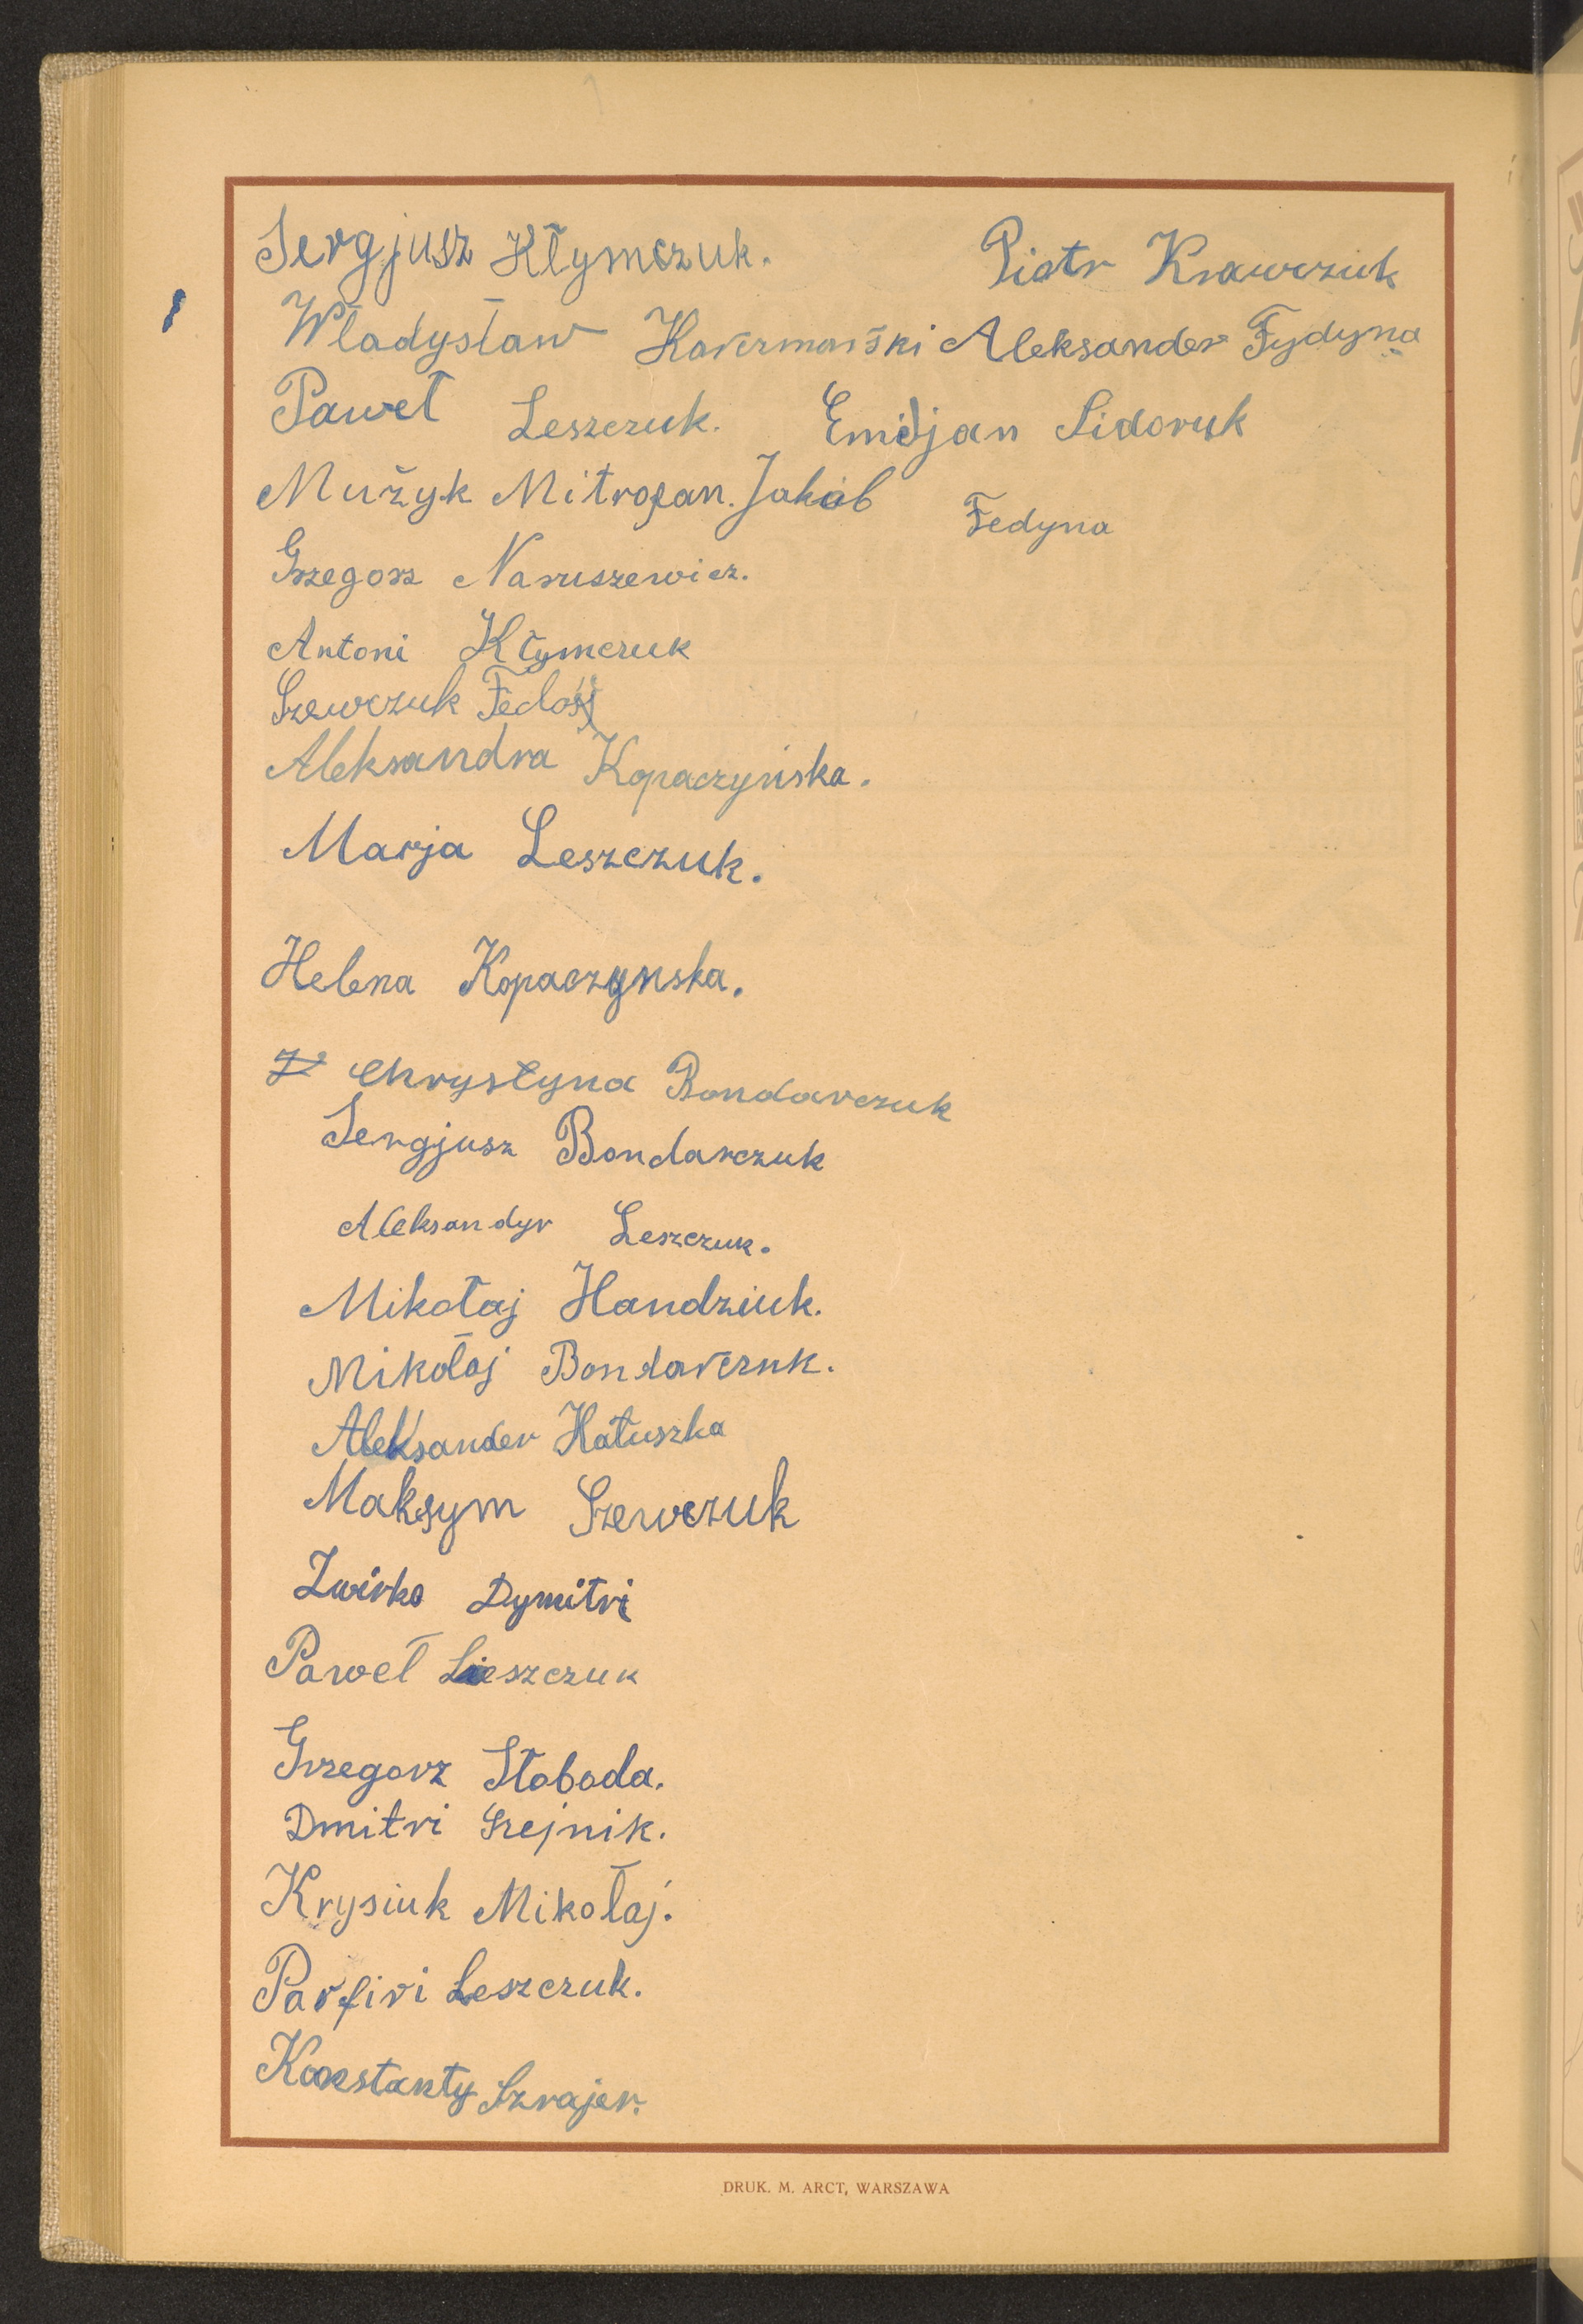 Sergjusz Kłymczuk. Piotr Krawczuk
Władysław Aleksander Fydyna
Paweł Leszczuk. Emiljan Sidoruk
Mużyk Mitrofan. Jakób Fedyna
Grzegorz Naruszewicz.
Antoni Kłymczuk
Szewczuk Fedoś
Aleksandra Kopaczyńska.
Marja Leszczuk.
Helena Kopaczynska.
Chrystyna Bondarczuk
Sergjusz Bondarczuk
Aleksandyr Leszczuk.
Mikołaj Handziuk.
Mikołaj Bondarczuk.
Aleksander Hałuszka
Maksym Szewczuk
Zwirko Dymitri
Paweł Leszczuk
Grzegorz Słoboda.
Dmitri Szejnik.
Krysiuk Mikołaj.
Parfiri Leszczuk.
Konstanty Szrajer.
DRUK. M. ARCT, WARSZAWA